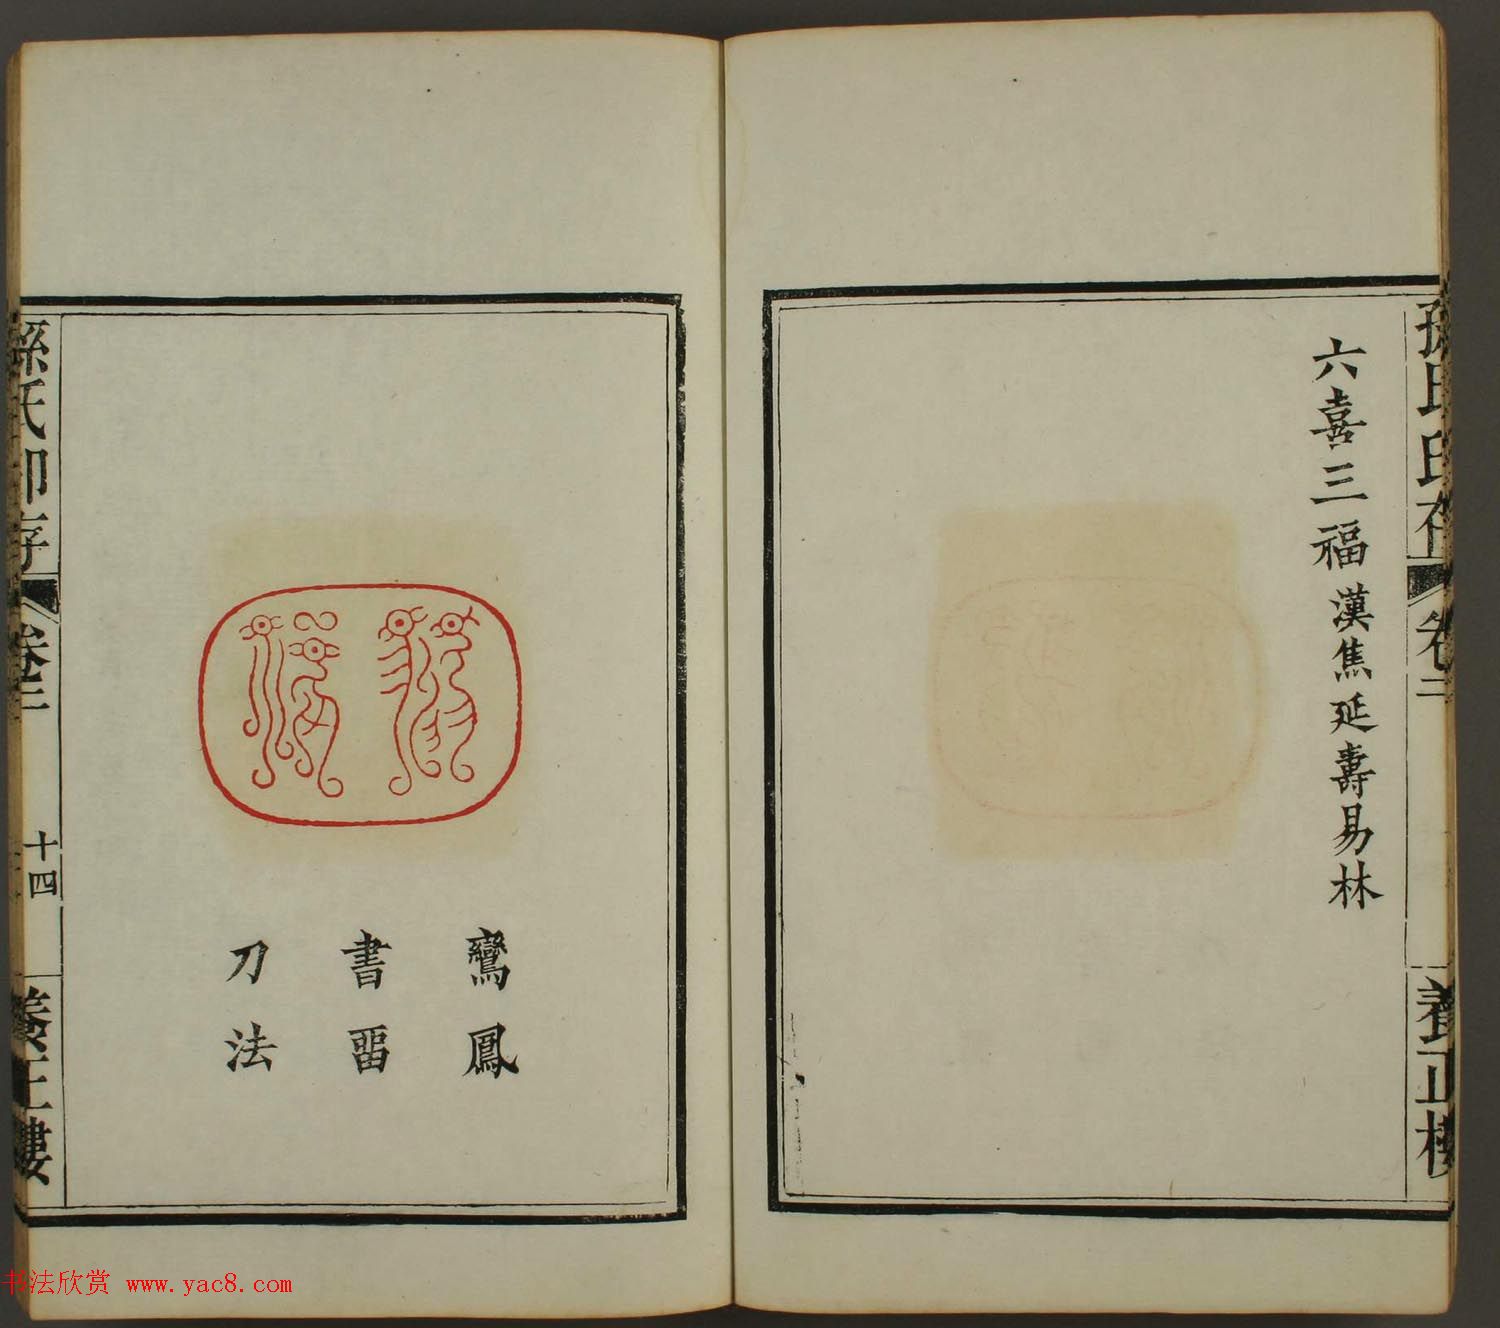 孫氏印存
卷二
養正樓
六喜三福漢焦延壽易林
鸞鳳
書畱
刀法
孫氏印存
卷二
十四
養正樓
书法欣赏 www.yac8.com